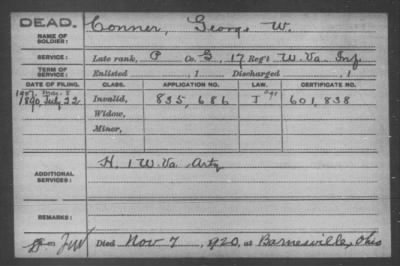 DEAD.
NAME OF SOLDIER:
Conner, George W.
SERVICE:
Late rank, P Co. G, 17 Reg't W. Va. Inf.
TERM OF SERVICE:
Enlisted , 1 Discharged , 1
DATE OF FILING. CLASS. APPLICATION NO. LAW. CERTIFICATE NO.
1890, July 22 Invalid, 835,686 J 601,838
Widow,
Minor,
ADDITIONAL SERVICES:
H. 1 W. Va. Arty
REMARKS:
Died Nov 7, 1920, at Barnesville, Ohio